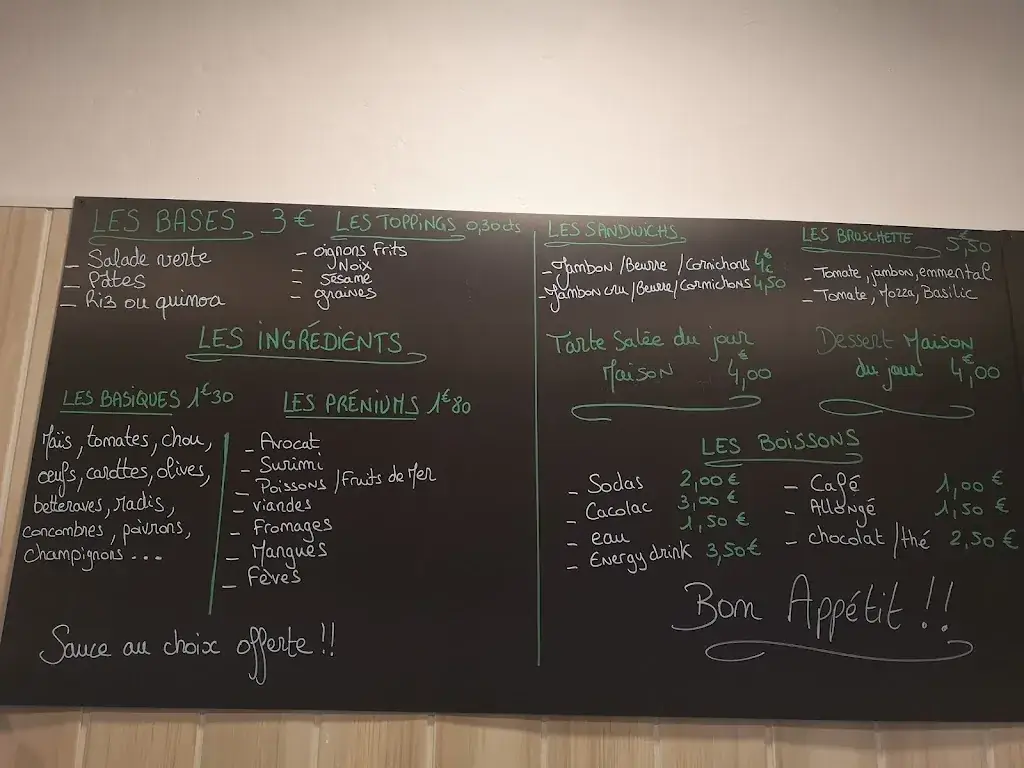 LES BASES 3 €
_ Salade verte
_ Pâtes
_ Riz ou quinoa
LES TOPPINGS 0,30 cts
_ oignons frits
_ Noix
_ Sésame
_ graines
LES INGRÉDIENTS
LES BASIQUES 1€30
Maïs, tomates, chou,
œufs, carottes, olives,
betteraves, radis,
concombres, poivrons,
champignons...
LES PRÉMIUMS 1€80
_ Avocat
_ Surimi
_ Poissons / Fruits de Mer
_ viandes
_ Fromages
_ Mangues
_ Fèves
Sauce au choix offerte !!
LES SANDWICHS
_ Jambon / Beurre / Cornichons 4€
_ Jambon cru / Beurre / Cornichons 4,50
LES BRUSCHETTE 5,50€
_ Tomate, jambon, emmental
_ Tomate, Mozza, Basilic
Tarte Salée du jour
Maison 4,00€
Dessert Maison
du jour 4,00€
LES BOISSONS
_ Sodas 2,00 €
_ Cacolac 3,00 €
_ eau 1,50 €
_ Energy drink 3,50 €
_ Café 1,00 €
_ Allongé 1,50 €
_ chocolat / thé 2,50 €
Bon Appétit !!